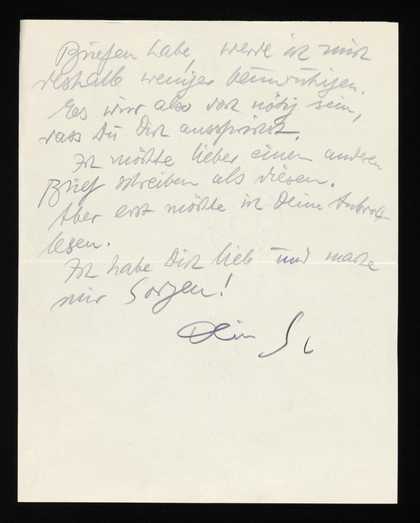 Briefen habe, werde ich mich
deshalb weniger beunruhigen.
Es wird also doch nötig sein,
dass Du Dich aussprichst.
Ich möchte lieber einen anderen
Brief schreiben als diesen.
Aber erst möchte ich Deine Antwort
lesen.
Ich habe Dich lieb und mache
mir Sorgen!
Dein